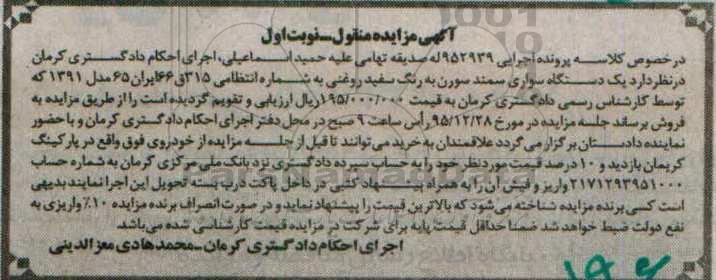 آگهی مزایده منقول_نوبت اول
درخصوص کلاسه پرونده اجرایی ۹۵۲۹۳۹له صدیقه تهامی علیه حمید اسماعیلی، اجرای احکام دادگستری کرمان
درنظر دارد یک دستگاه سواری سمند سورن به رنگ سفید روغنی به شماره انتظامی ۳۱۵ق۶۶ایران۶۵ مدل ۱۳۹۱ که
توسط کارشناس رسمی دادگستری کرمان به قیمت ۱۹۵/۰۰۰/۰۰۰ریال ارزیابی و تقویم گردیده است را از طریق مزایده به
فروش برساند جلسه مزایده در مورخ ۹۵/۱۲/۲۸رأس ساعت ۹ صبح در محل دفتر اجرای احکام دادگستری کرمان و با حضور
نماینده دادستان برگزار می گردد علاقمندان به خرید می توانند تا قبل از جلسه مزایده از خودروی فوق واقع در پارکینگ
کریمان بازدید و ۱۰ درصد قیمت مورد نظر خود را به حساب سپرده دادگستری نزد بانک ملی مرکزی کرمان به شماره حساب
۲۱۷۱۲۹۳۹۵۱۰۰۰ واریز و فیش آن را به همراه پیشنهاد کتبی در داخل پاکت درب بسته تحویل این اجرا نمایند بدیهی
است کسی برنده مزایده شناخته می شود که بالاترین قیمت را پیشنهاد نماید و در صورت انصراف برنده مزایده ۱۰٪ واریزی به
نفع دولت ضبط خواهد شد ضمنا حداقل قیمت پایه برای شرکت در مزایده قیمت کارشناسی شده می باشد.
اجرای احکام دادگستری کرمان_محمدهادی معزالدینی